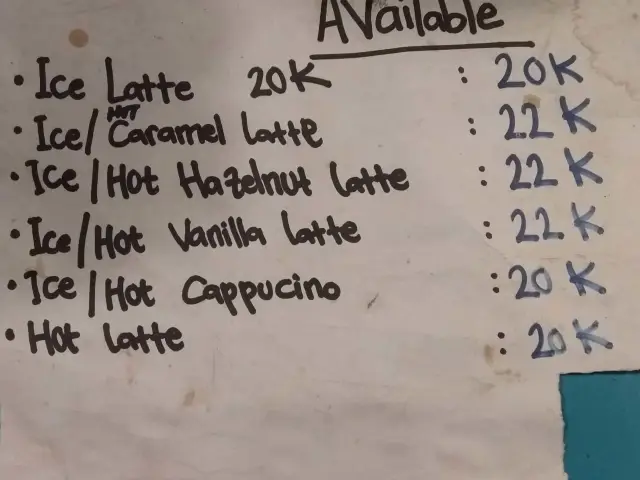 AVailable
• Ice Latte 20K : 20K
• Ice/HOT Caramel Latte : 22K
• Ice/Hot Hazelnut Latte : 22K
• Ice/Hot Vanilla Latte : 22K
• Ice/Hot Cappucino : 20K
• Hot Latte : 20K